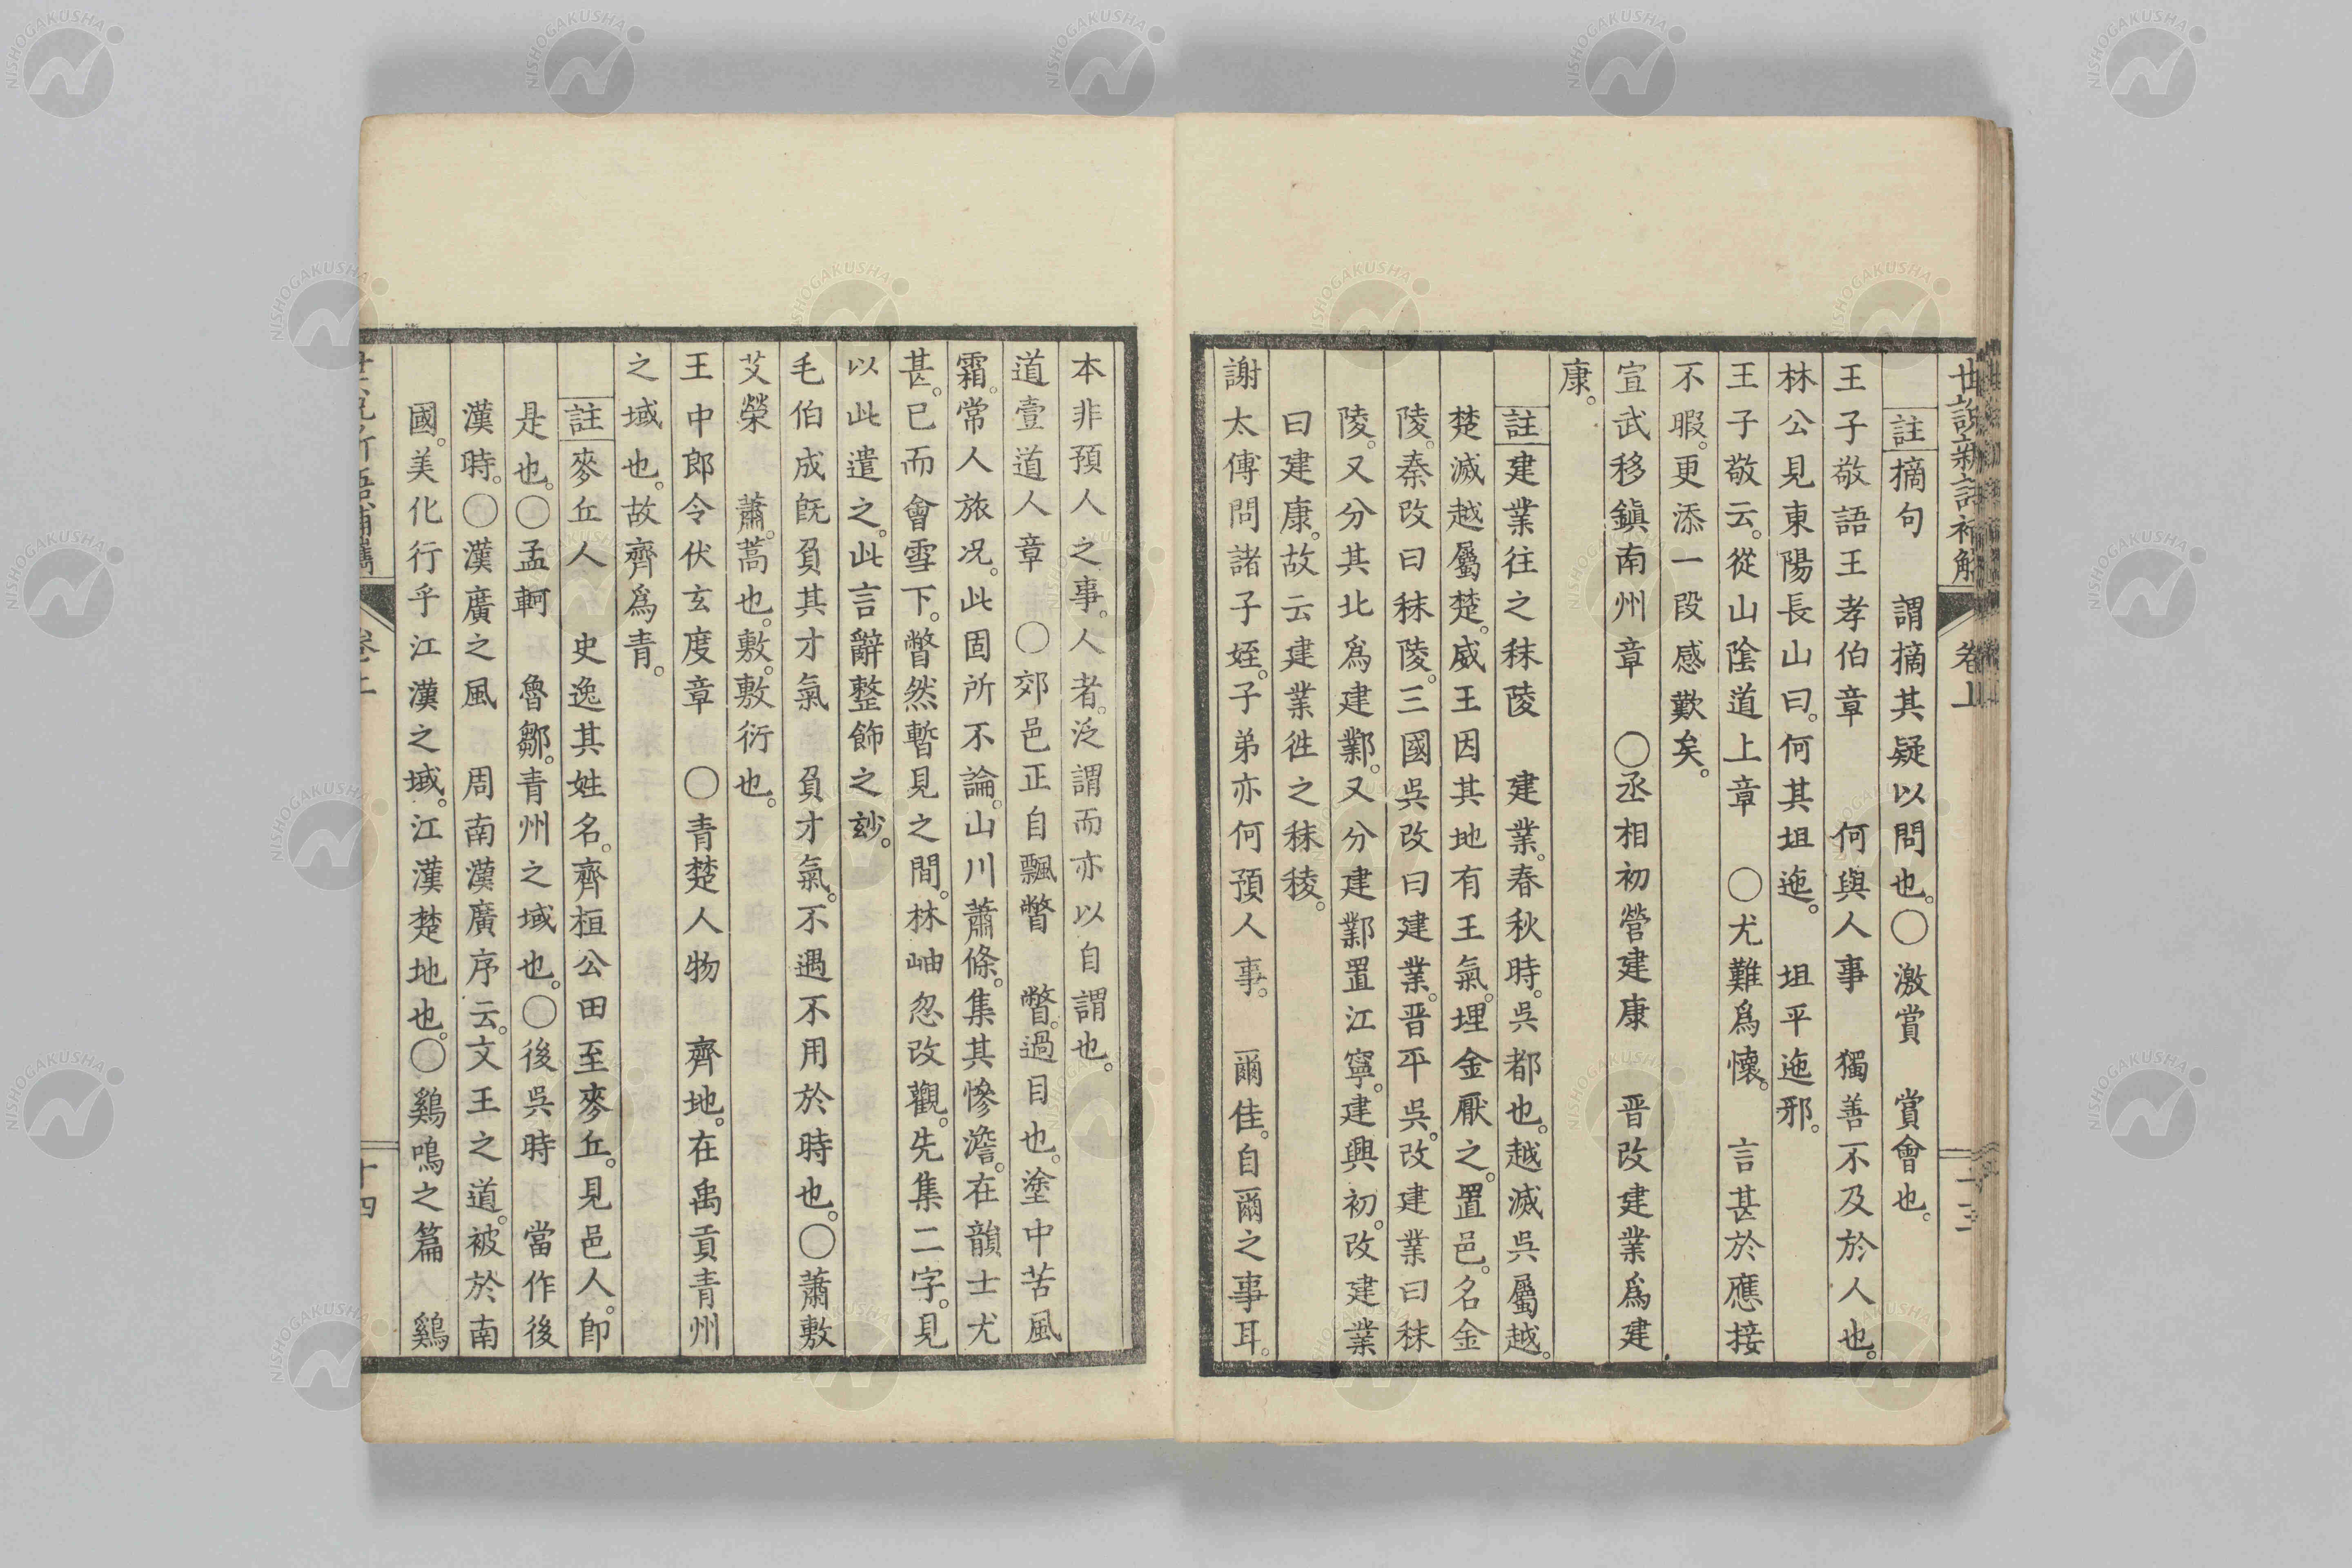 世說新語補觿 卷上 十三
註摘句 謂摘其疑以問也。〇激賞 賞會也。
王子敬語王孝伯章 何與人事 獨善不及於人也。
林公見東陽長山曰。何其坦迤。 坦平迤邪。
王子敬云。從山陰道上章 〇尤難爲懷。 言甚於應接
不暇。更添一段感歎矣。
宣武移鎭南州章 〇丞相初營建康 晋改建業爲建
康。
註建業往之秣陵 建業。春秋時。呉都也。越滅呉屬越。
楚滅越屬楚。威王因其地有王氣。埋金厭之。置邑。名金
陵。秦改曰秣陵。三國呉改曰建業。晋平呉。改建業曰秣
陵。又分其北爲建鄴。又分建鄴置江寧。建興初。改建業
曰建康。故云建業徃之秣稜。
謝太傅問諸子姪。子弟亦何預人事。 爾佳。自爾之事耳。
本非預人之事。人者。泛謂而亦以自謂也。
道壹道人章 〇郊邑正自飄瞥 瞥。過目也。塗中苦風
霜。常人旅况。此固所不論。山川蕭條。集其慘澹。在韻士尤
甚。已而會雪下。瞥然暫見之間。林岫忽改觀。先集二字。見
以此遣之。此言辭整飾之玅。
毛伯成旣負其才氣 負才氣。不遇不用於時也。〇蕭敷
艾榮 蕭。蒿也。敷。敷衍也。
王中郎令伏玄度章 〇青楚人物 齊地。在禹貢青州
之域也。故齊爲青。
註麥丘人 史逸其姓名。齊桓公田至麥丘。見邑人。卽
是也。〇孟軻 魯鄒。青州之域也。〇後呉時 當作後
漢時。〇漢廣之風 周南漢廣序云。文王之道。被於南
國。美化行乎江漢之域。江漢楚地也。〇鷄鳴之篇 鷄
世說新語補觿 卷上 十四